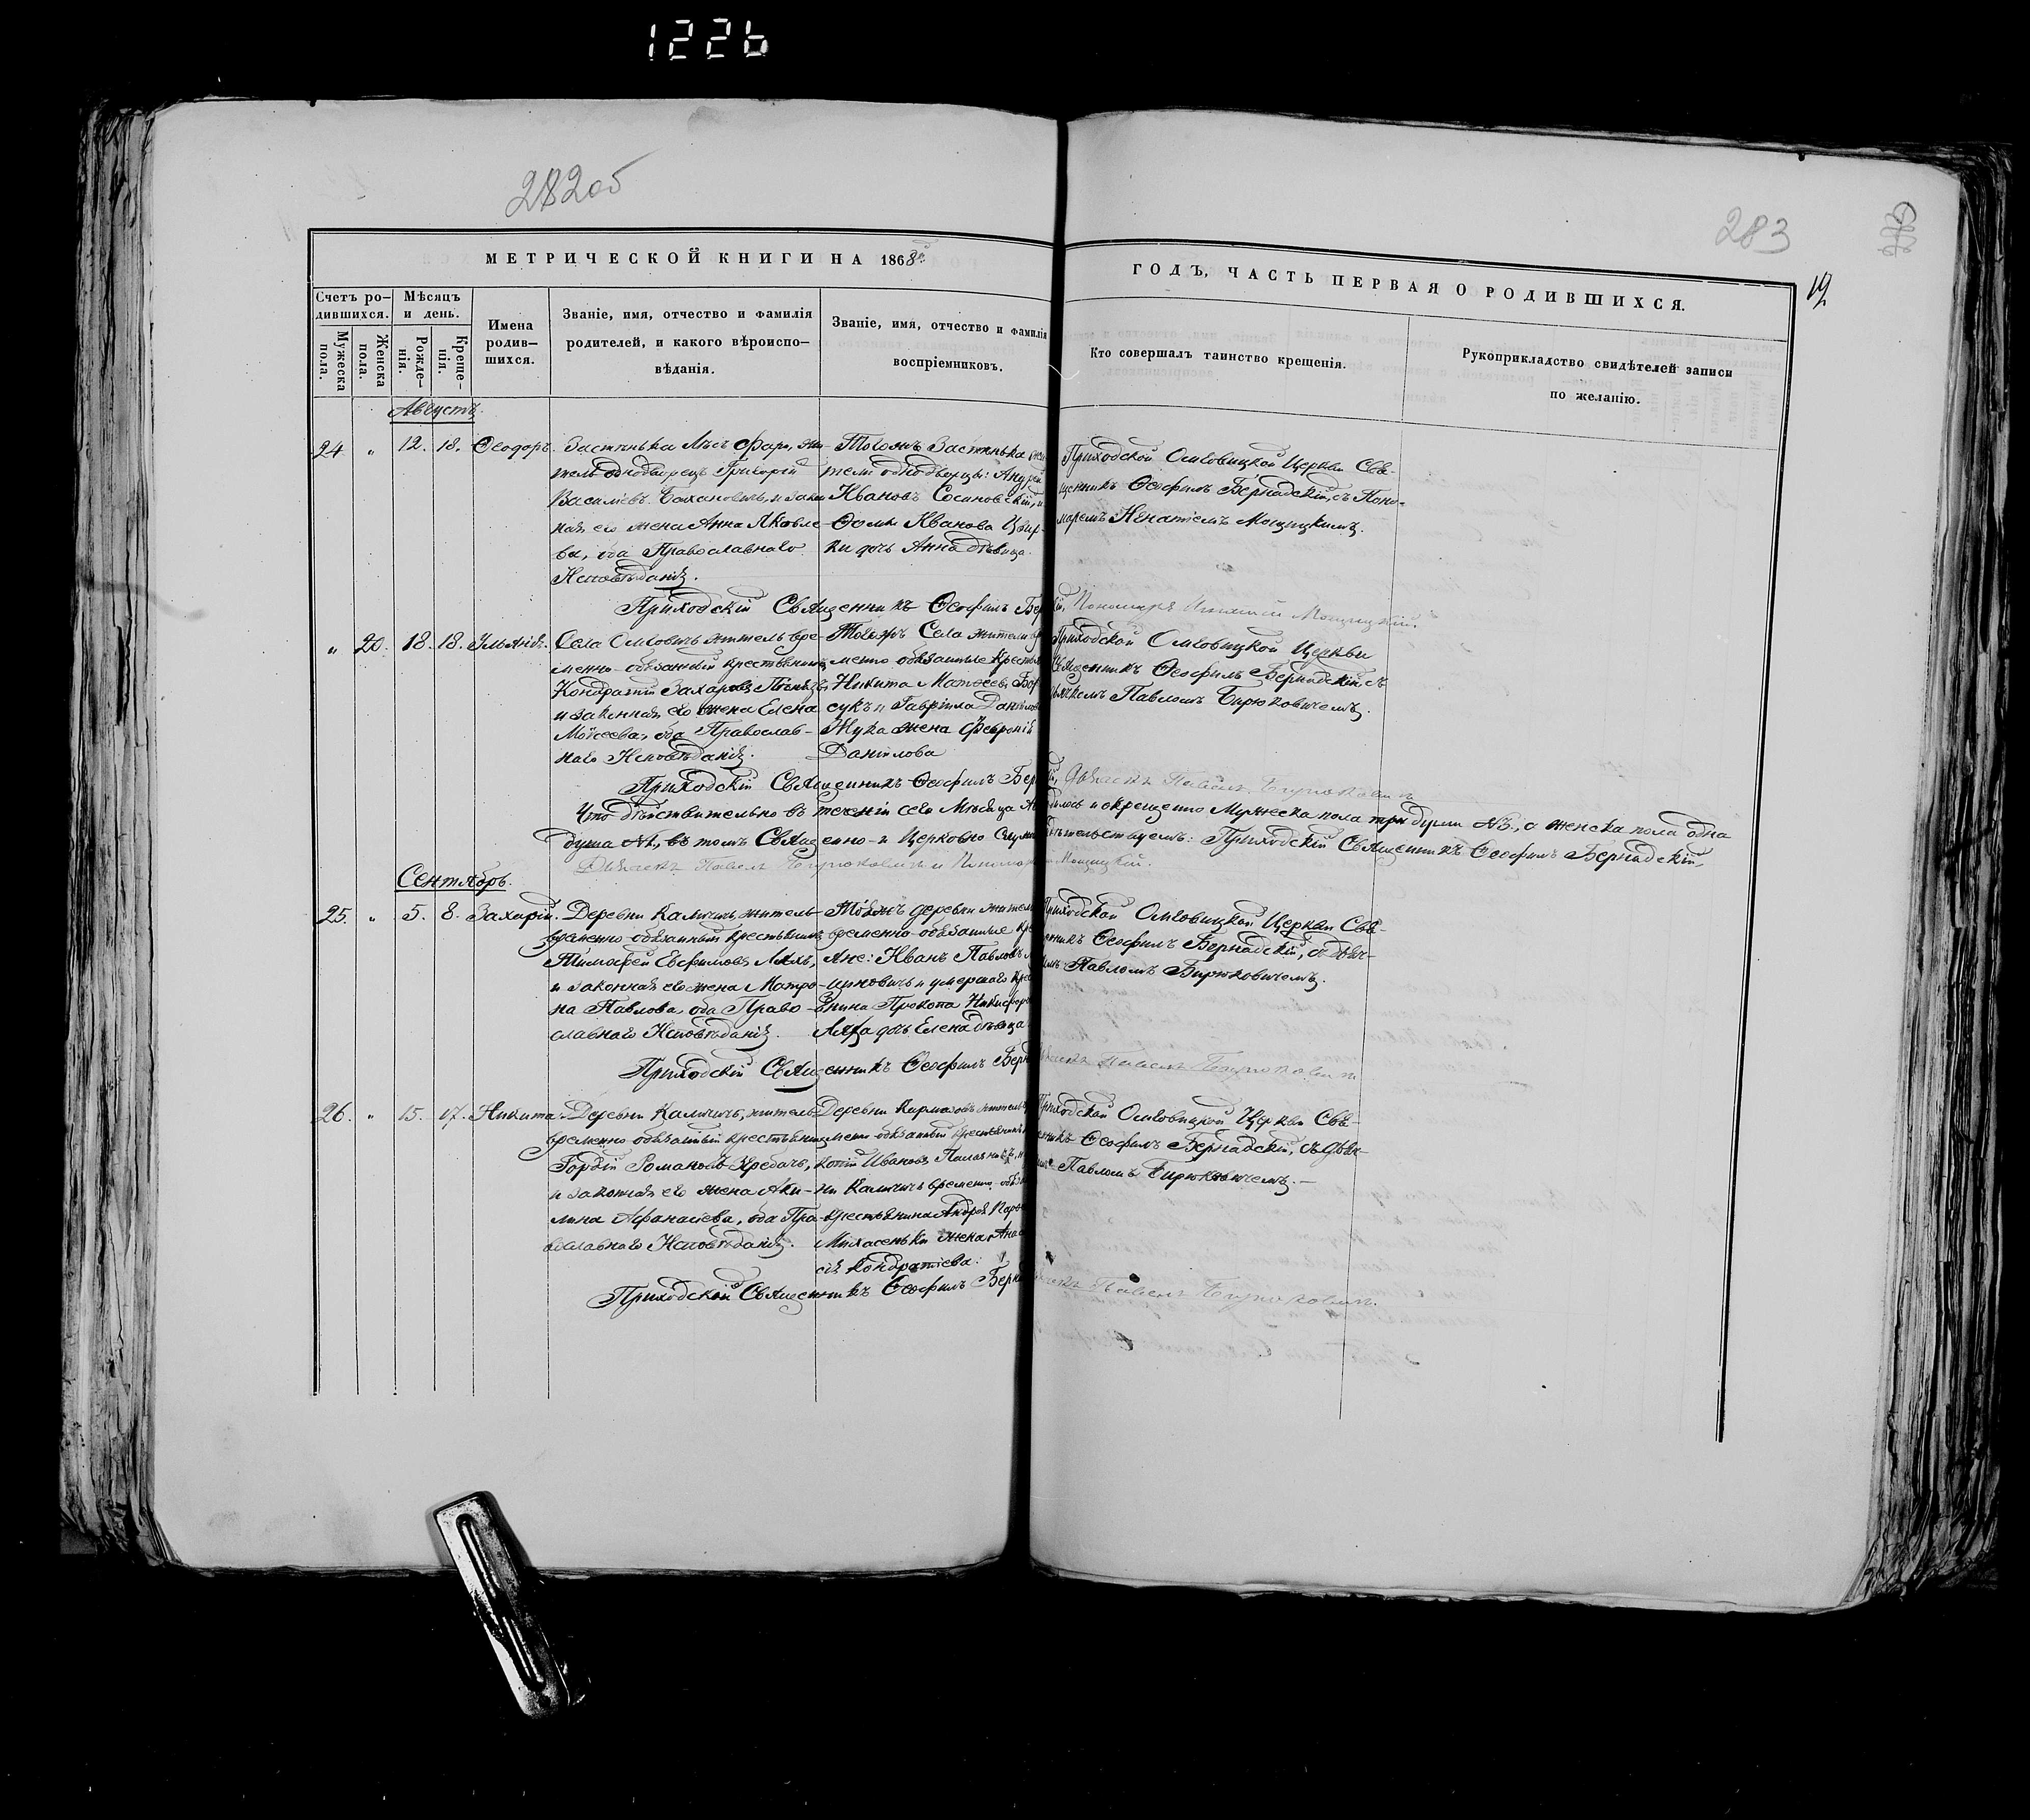 1226
282об
283
19
МЕТРИЧЕСКОЙ КНИГИ НА 1868й
ГОДЪ, ЧАСТЬ ПЕРВАЯ О РОДИВШИХСЯ.
Счетъ ро-
дившихся.
Мужеска
пола.
Женска
пола.
Мѣсяцъ
и день.
Рожде-
нія.
Креще-
нія.
Имена
родив-
шихся.
Званіе, имя, отчество и фамилія
родителей, и какого вѣроиспо-
вѣданія.
Званіе, имя, отчество и фамилія
воспріемниковъ.
Кто совершалъ таинство крещенія.
Рукоприкладство свидѣтелей записи
по желанію.
Августъ.
24. " 12. 18. Ѳеодоръ.
Застѣнька Лысъ жи-
тель однодворецъ Григорій
Василіевъ и закон
ная его жена Анна Яковле-
ва, оба Православнаго
Исповѣданія.
Тогожъ Застѣнька жи
тели однодворцы: Андрей
Ивановъ Сосиновскій, и
Ѳомы Иванова
ки дочь Анна дѣвица.
Приходской Омговицкой Церкви Свя-
щенникъ Ѳеофилъ Бернадскій, съ Поно-
маремъ Игнатіемъ Мощицкимъ.
Приходскій Священникъ Ѳеофилъ Бер кій, Пономарь Игнатій Мощицкій.
" 20. 18. 18. Уліанія.
Села Омговичъ житель вре-
менно-обязанный крестьянинъ
Кондратій Захаровъ
и законная его жена Елена
Моѵсеева, оба Православ-
наго Исповѣданія.
Тогожъ Села жители вр
менно обязанные Крестья
Никита Матѳеевъ Бор
сукъ и Гавріила Данилова
Жука жена Февронія
Данілова
Приходской Омговицкой Церкви
Священникъ Ѳеофилъ Бернадскій, съ
Дьячкомъ Павломъ Бирюковичемъ.
Приходскій Священникъ Ѳеофилъ Бер й, Дьячекъ Павелъ Бирюковичъ
Что дѣйствительно въ теченіи сего Мѣсяца Ав дилось и окрещено Мужеска пола три души №3., а женска пола одна
душа №1., въ томъ Священно- и Церковно Служи дѣтельствуемъ: Приходскій Священникъ Ѳеофилъ Бернадскій,
Дьячекъ Павелъ Бирюковичъ и Пономарь Мощицкій.
Сентябрь.
25. " 5. 8. Захарій.
Деревни Каличичъ, житель
временно-обязанный крестьянинъ
Тимоѳей Евфимовъ Ляхъ,
и законная его жена Матро-
на Павлова, оба Право-
славнаго Исповѣданія.
Тойжъ деревни жители
временно-обязанные кре
яне: Иванъ Павловъ
циновичъ и умершаго Крес
янина Прокопа Никифоро
Ляха дочь Елена дѣвица
Приходской Омговицкой Церкви Свя-
щенникъ Ѳеофилъ Бернадскій, съ Дьяч-
комъ Павломъ Бирюковичемъ.
Приходскій Священникъ Ѳеофилъ Берн Дьячекъ Павелъ Бирюковичъ
26. " 15. 17. Никита.
Деревни Каличичъ, житель
временно обязанный крестьянинъ
Гордій Романовъ
и законная его жена Аки-
лина Афанасіева, оба Пра-
вославнаго Исповѣданія.
Деревни житель вр
менно-обязанный крестьянинъ
Ивановъ
ни Каличичъ временно-обяз
крестьянина Андрея
Михасеньки жена Анас
сія Кондратіева.
Приходской Омговицкой Церкви Свя-
щенникъ Ѳеофилъ Бернадскій, съ Дьяч-
комъ Павломъ Бирюковичемъ.
Приходскій Священникъ Ѳеофилъ Берн Дьячекъ Павелъ Бирюковичъ.